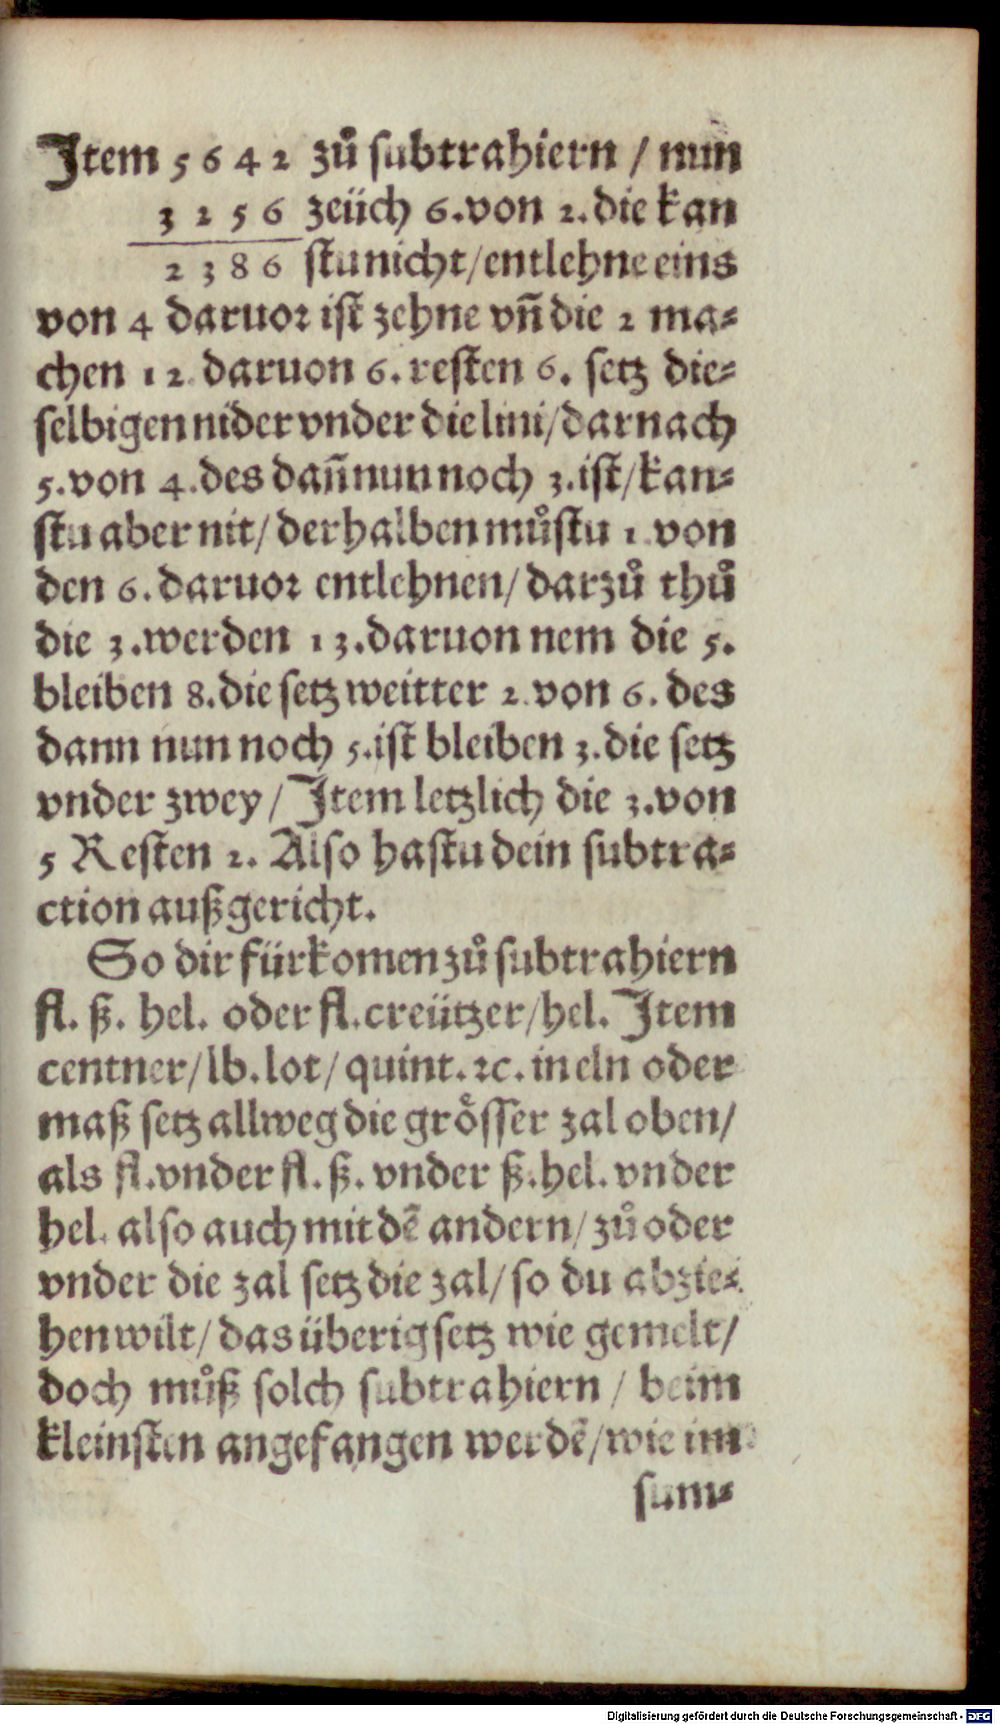 Item 5 6 4 2 zů subtrahiern / nun
3 2 5 6 zeüch 6. von 2. die kan
2 3 8 6 stu nicht / entlehne eins
von 4 daruor ist zehne vñ die 2 ma⸗
chen 1 2. daruon 6. resten 6. setz die⸗
selbigen nider vnder die lini / darnach
5. von 4. des dañ nun noch 3. ist / kan⸗
stu aber nit / derhalben můstu 1. von
den 6. daruor entlehnen / darzů thů
die 3. werden 1 3. daruon nem die 5.
bleiben 8. die setz weitter 2. von 6. des
dann nun noch 5. ist bleiben 3. die setz
vnder zwey / Item letzlich die 3. von
5 Resten 2. Also hastu dein subtra⸗
ction außgericht.
So dir fürkomen zů subtrahiern
fl. ß. hel. oder fl. creützer / hel. Item
centner / lb. lot / quint. ⁊c. in eln oder
maß setz allweg die grösser zal oben /
als fl. vnder fl. ß. vnder ß. hel. vnder
hel. also auch mit dẽ andern / zů oder
vnder die zal setz die zal / so du abzie⸗
hen wilt / das überig setz wie gemelt /
doch můß solch subtrahiern / beim
kleinsten angefangen werdẽ / wie im
sum⸗
Digitalisierung gefördert durch die Deutsche Forschungsgemeinschaft - DFG